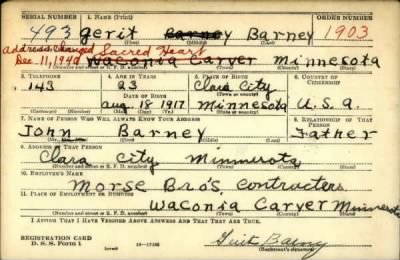 SERIAL NUMBER 1. NAME (Print) ORDER NUMBER
493 Gerit Barney Barney 1903
(First) (Middle) (Last)
address changed Sacred Heart
Dec 11, 1940 Waconia Carver Minnesota
3. TELEPHONE 4. AGE IN YEARS 5. PLACE OF BIRTH 6. COUNTRY OF CITIZENSHIP
143 23 Clara City
DATE OF BIRTH (Town or county)
Aug. 18 1917 Minnesota U.S.A.
(Exchange) (Number) (Mo.) (Day) (Yr.) (State or country)
7. NAME OF PERSON WHO WILL ALWAYS KNOW YOUR ADDRESS 8. RELATIONSHIP OF THAT PERSON
John Barney Father
(Mr., Mrs., Miss) (First) (Middle) (Last)
9. ADDRESS OF THAT PERSON
Clara City Minnesota
(Number and street or R. F. D. number) (Town) (County) (State)
10. EMPLOYER'S NAME
Morse Bros. Contracters
11. PLACE OF EMPLOYMENT OR BUSINESS
Waconia Carver Minnesota
(Number and street or R. F. D. number) (Town) (County) (State)
I AFFIRM THAT I HAVE VERIFIED ABOVE ANSWERS AND THAT THEY ARE TRUE.
REGISTRATION CARD
D. S. S. FORM 1 16—17105 Barney
(Registrant's signature)